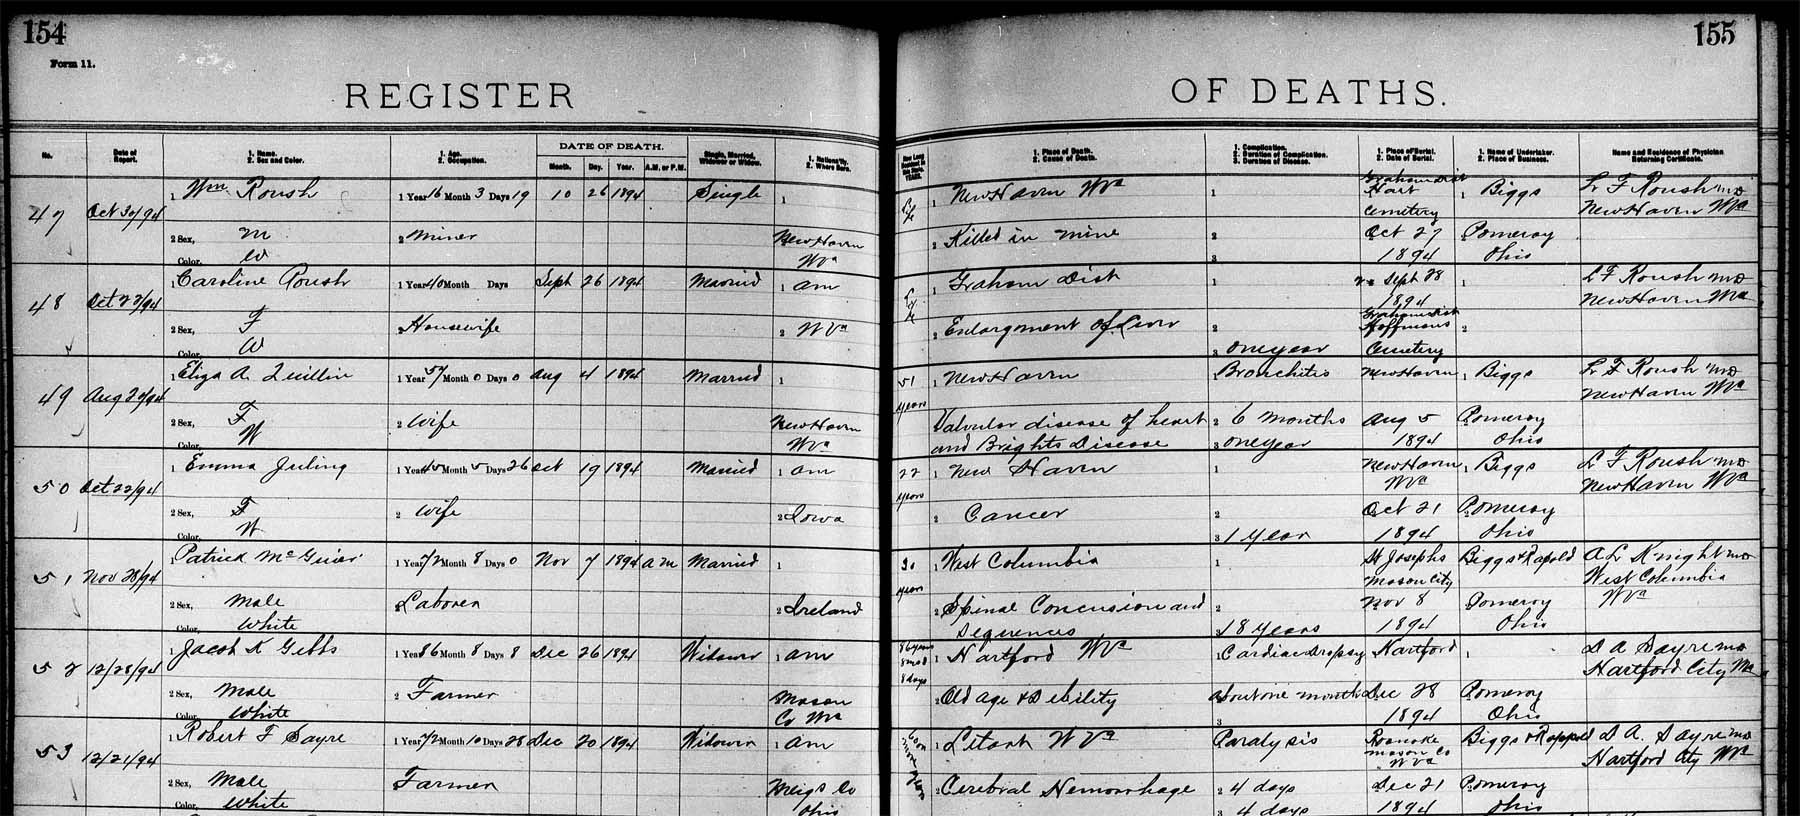 154
Form 11.
REGISTER
155
OF DEATHS.
No. Date of Report. 1. Name. 2. Sex and Color. 1. Age. 2. Occupation. DATE OF DEATH. Month. Day. Year. A.M. or P.M. Single, Married, Widower or Widow. 1. Nationality. 2. Where Born.
1. Place of Death. 2. Cause of Death. 1. Complication. 2. Duration of Complication. 3. Duration of Disease. 1. Place of Burial. 2. Date of Burial. 1. Name of Undertaker. 2. Place of Business. Name and Residence of Physician Returning Certificate.
47 Oct 30/94 1 Wm Roush 1 Year 16 Month 3 Days 19 10 26 1894 Single 1
2 Sex, M 2 Miner New Haven
Color, W WVa
Life 1 New Haven WVa 1 Graham Dist Hart Cemetery 1 Biggs L F Roush MD New Haven WVa
2 Killed in mine 2 Oct 27 Pomeroy
3 1894 Ohio
48 Oct 27/94 1 Caroline Roush 1 Year 40 Month Days Sept 26 1894 Married 1 Am
2 Sex, F 2 Housewife 2 WVa
Color, W
Life 1 Graham Dist 1 Sept 28 1894 1 L F Roush MD New Haven WVa
2 Enlargment of Liver 2 Graham Dist Hoffmans 2
3 one year Cemetery
49 Aug 1 Eliza A. Quillin 1 Year 57 Month 0 Days 0 Aug 4 1894 Married 1
2 Sex, F 2 Wife New Haven
Color, W WVa
51 years 1 New Haven 1 Bronchitis New Haven 1 Biggs L F Roush MD New Haven WVa
Valvular disease of heart 2 6 Months Aug 5 Pomeroy
and Brights Disease 3 one year 1894 Ohio
50 Oct 22/94 1 Emma Juling 1 Year 45 Month 5 Days 26 Oct 19 1894 Married 1 Am
2 Sex, F 2 Wife 2 Iowa
Color, W
22 years 1 New Haven 1 New Haven WVa 1 Biggs L F Roush MD New Haven WVa
2 Cancer 2 Oct 21 Pomeroy
3 1 Year 1894 Ohio
51 Nov 28/94 1 Patrick McGuier 1 Year 72 Month 8 Days 0 Nov 7 1894 AM Married 1
2 Sex, Male 2 Laborer 2 Ireland
Color, White
30 years 1 West Columbia 1 St Josephs Mason City Biggs & Rapold A L Knight MD West Columbia WVa
2 Spinal Concusion and 2 Nov 8 Pomeroy
Sequences 3 18 Years 1894 Ohio
52 12/28/94 1 Jacob K Gibbs 1 Year 86 Month 8 Days 8 Dec 26 1894 Widower 1 Am
2 Sex, Male 2 Farmer Mason
Color, White Co WVa
86 years 8 mos 8 days 1 Hartford WVa 1 Cardiac dropsy Hartford 1 D A Sayre MD Hartford City WVa
2 Old age & Debility About one month Dec 28 Pomeroy
3 1894 Ohio
53 12/21/94 1 Robert F Sayre 1 Year 72 Month 10 Days 28 Dec 20 1894 Widower 1 Am
2 Sex, Male Farmer Meigs Co
Color, White Ohio
1 Letart WVa Paralysis Roanoke Mason Co WVa Biggs & Rappold D A. Sayre MD Hartford City WVa
2 Cerebral Hemorrhage 2 4 days Dec 21 Pomeroy
3 4 days 1894 Ohio